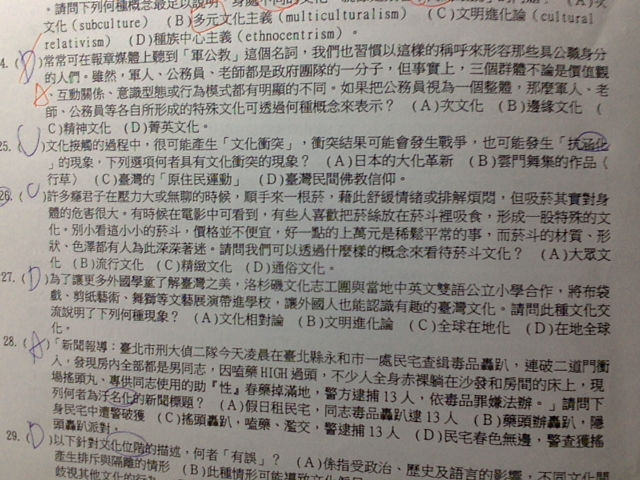 (subculture) (B)多元文化主義(multiculturalism) (C)文明進化論(cultural
relativism) (D)種族中心主義(ethnocentrism)。
4. (D)常常可在報章媒體上聽到「軍公教」這個名詞，我們也習慣以這樣的稱呼來形容那些具公職身分
的人們。雖然，軍人、公務員、老師都是政府團隊的一分子，但事實上，三個群體不論是價值觀
A、互動關係、意識型態或行為模式都有明顯的不同。如果把公務員視為一個整體，那麼軍人、老
師、公務員等各自所形成的特殊文化可透過何種概念來表示？ (A)次文化 (B)邊緣文化
(C)精神文化 (D)菁英文化。
25. ( )文化接觸的過程中，很可能產生「文化衝突」，衝突結果可能會發生戰爭，也可能發生「抗涵化
」的現象，下列選項何者具有文化衝突的現象？ (A)日本的大化革新 (B)雲門舞集的作品〈
行草〉 (C)臺灣的「原住民運動」 (D)臺灣民間佛教信仰。
26. (C)許多癮君子在壓力大或無聊的時候，順手來一根菸，藉此舒緩情緒或排解煩悶，但吸菸其實對身
體的危害很大。有時候在電影中可看到，有些人喜歡把菸絲放在菸斗裡吸食，形成一股特殊的文
化。別小看這小小的菸斗，價格並不便宜，好一點的上萬元是稀鬆平常的事，而菸斗的材質、形
狀、色澤都有人為此深深著迷。請問我們可以透過什麼樣的概念來看待菸斗文化？ (A)大眾文
化 (B)流行文化 (C)精緻文化 (D)通俗文化。
27. (D)為了讓更多外國學童了解臺灣之美，洛杉磯文化志工團與當地中英文雙語公立小學合作，將布袋
戲、剪紙藝術、舞獅等文藝展演帶進學校，讓外國人也能認識有趣的臺灣文化。請問此種文化交
流說明了下列何種現象？ (A)文化相對論 (B)文明進化論 (C)全球在地化 (D)在地全球
化。
28. (A)「新聞報導：臺北市刑大偵二隊今天凌晨在臺北縣永和市一處民宅查緝毒品轟趴，連破二道門衝
人，發現房內全部都是男同志，因嗑藥HIGH過頭，不少人全身赤裸躺在沙發和房間的床上，現
場搖頭丸、專供同志使用的助『性』春藥掉滿地，警方逮捕13人，依毒品罪嫌法辦。」請問下
列何者為汙名化的新聞標題？ (A)假日租民宅，同志毒品轟趴逮13人 (B)藥頭辦轟趴，隱
身民宅中遭警破獲 (C)搖頭轟趴，嗑藥、濫交，警逮捕13人 (D)民宅春色無邊，警查獲搖
頭轟趴派對。
29. (D)以下針對文化位階的描述，何者「有誤」？ (A)係指受政治、歷史及語言的影響，不同文化間
產生排斥與隔離的情形 (B)此種情形可能導致文化
歧視其他文化的行為